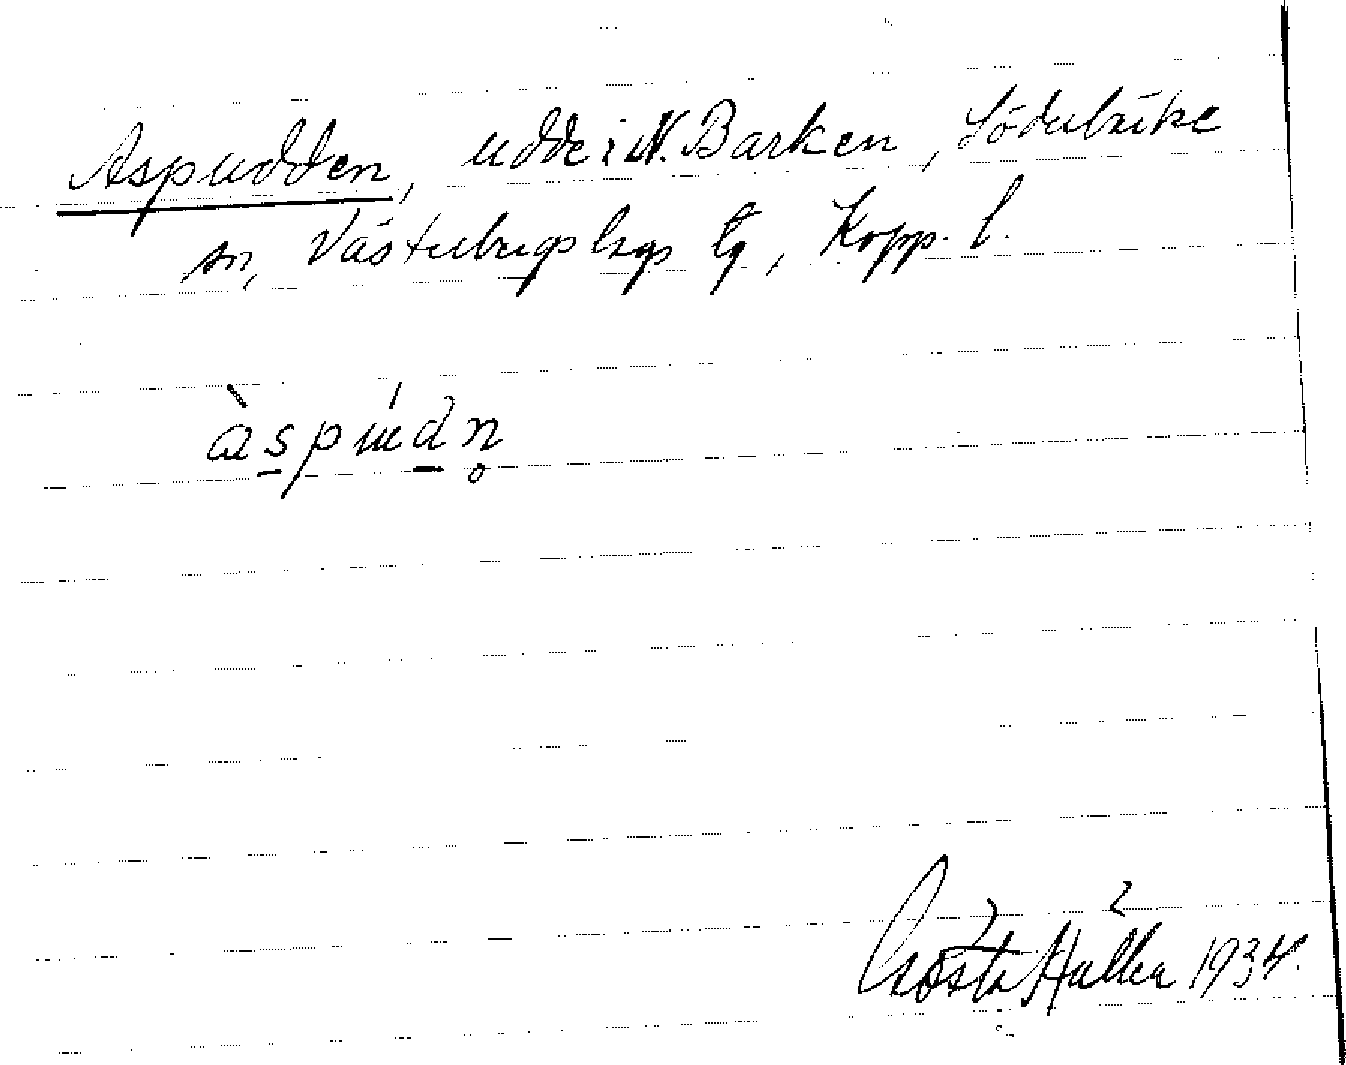 Aspudden, udde i N. Barken, Söderbärke
sn, Västerbergslags tg, Kopp. l.
àspúdn̥
Gösta 1934.